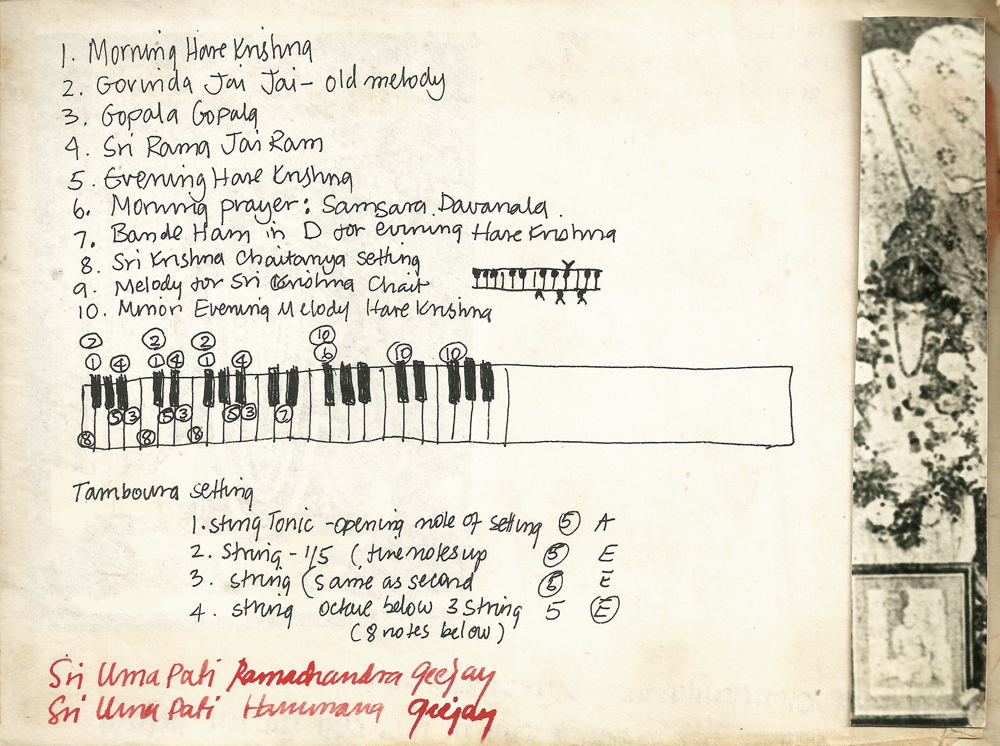 1. Morning Hare Krishna
2. Govinda Jai Jai - old melody
3. Gopala Gopala
4. Sri Rama Jai Ram
5. Evening Hare Krishna
6. Morning prayer: Samsara Davanala.
7. Bande Ham in D for evining Hare Krishna
8. Sri Krishna Chaitanya setting
9. Melody for Sri Krishna Chait
10. Minor Evening Melody Hare Krishna
2 2 2 10
1 4 1 4 1 4 6 10 10
5 3 5 3 5 3 7
8 8 8
Tamboura setting
1. string Tonic - opening note of setting 5 A
2. string - 1/5 ( five notes up 5 E
3. string (same as second 5 E
4. string octave below 3 string 5 E
(8 notes below)
Sri Uma Pati Ramachandra geejay
Sri Uma Pati Hanumana geejay